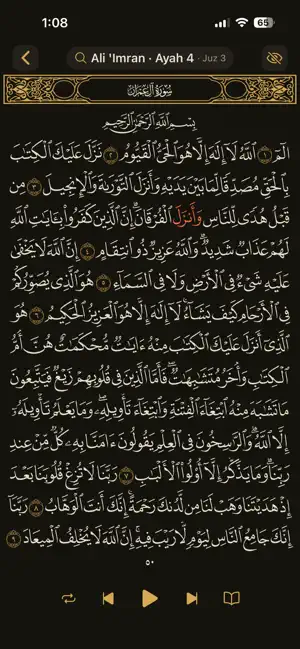 1:08 65
Ali 'Imran · Ayah 4 · Juz 3
سُورَةُ آلِ عِمۡرَانَ
بِسۡمِ ٱللَّهِ ٱلرَّحۡمَٰنِ ٱلرَّحِيمِ
الٓمٓ ١ ٱللَّهُ لَآ إِلَٰهَ إِلَّا هُوَ ٱلۡحَيُّ ٱلۡقَيُّومُ ٢ نَزَّلَ عَلَيۡكَ ٱلۡكِتَٰبَ
بِٱلۡحَقِّ مُصَدِّقٗا لِّمَا بَيۡنَ يَدَيۡهِ وَأَنزَلَ ٱلتَّوۡرَىٰةَ وَٱلۡإِنجِيلَ ٣ مِن
قَبۡلُ هُدٗى لِّلنَّاسِ وَأَنزَلَ ٱلۡفُرۡقَانَۗ إِنَّ ٱلَّذِينَ كَفَرُواْ بِـَٔايَٰتِ ٱللَّهِ
لَهُمۡ عَذَابٞ شَدِيدٞۗ وَٱللَّهُ عَزِيزٞ ذُو ٱنتِقَامٍ ٤ إِنَّ ٱللَّهَ لَا يَخۡفَىٰ
عَلَيۡهِ شَيۡءٞ فِي ٱلۡأَرۡضِ وَلَا فِي ٱلسَّمَآءِ ٥ هُوَ ٱلَّذِي يُصَوِّرُكُمۡ
فِي ٱلۡأَرۡحَامِ كَيۡفَ يَشَآءُۚ لَآ إِلَٰهَ إِلَّا هُوَ ٱلۡعَزِيزُ ٱلۡحَكِيمُ ٦ هُوَ
ٱلَّذِيٓ أَنزَلَ عَلَيۡكَ ٱلۡكِتَٰبَ مِنۡهُ ءَايَٰتٞ مُّحۡكَمَٰتٌ هُنَّ أُمُّ
ٱلۡكِتَٰبِ وَأُخَرُ مُتَشَٰبِهَٰتٞۖ فَأَمَّا ٱلَّذِينَ فِي قُلُوبِهِمۡ زَيۡغٞ فَيَتَّبِعُونَ
مَا تَشَٰبَهَ مِنۡهُ ٱبۡتِغَآءَ ٱلۡفِتۡنَةِ وَٱبۡتِغَآءَ تَأۡوِيلِهِۦۖ وَمَا يَعۡلَمُ تَأۡوِيلَهُۥٓ
إِلَّا ٱللَّهُۗ وَٱلرَّٰسِخُونَ فِي ٱلۡعِلۡمِ يَقُولُونَ ءَامَنَّا بِهِۦ كُلّٞ مِّنۡ عِندِ
رَبِّنَاۗ وَمَا يَذَّكَّرُ إِلَّآ أُوْلُواْ ٱلۡأَلۡبَٰبِ ٧ رَبَّنَا لَا تُزِغۡ قُلُوبَنَا بَعۡدَ
إِذۡ هَدَيۡتَنَا وَهَبۡ لَنَا مِن لَّدُنكَ رَحۡمَةًۚ إِنَّكَ أَنتَ ٱلۡوَهَّابُ ٨ رَبَّنَآ
إِنَّكَ جَامِعُ ٱلنَّاسِ لِيَوۡمٖ لَّا رَيۡبَ فِيهِۚ إِنَّ ٱللَّهَ لَا يُخۡلِفُ ٱلۡمِيعَادَ ٩
٥٠